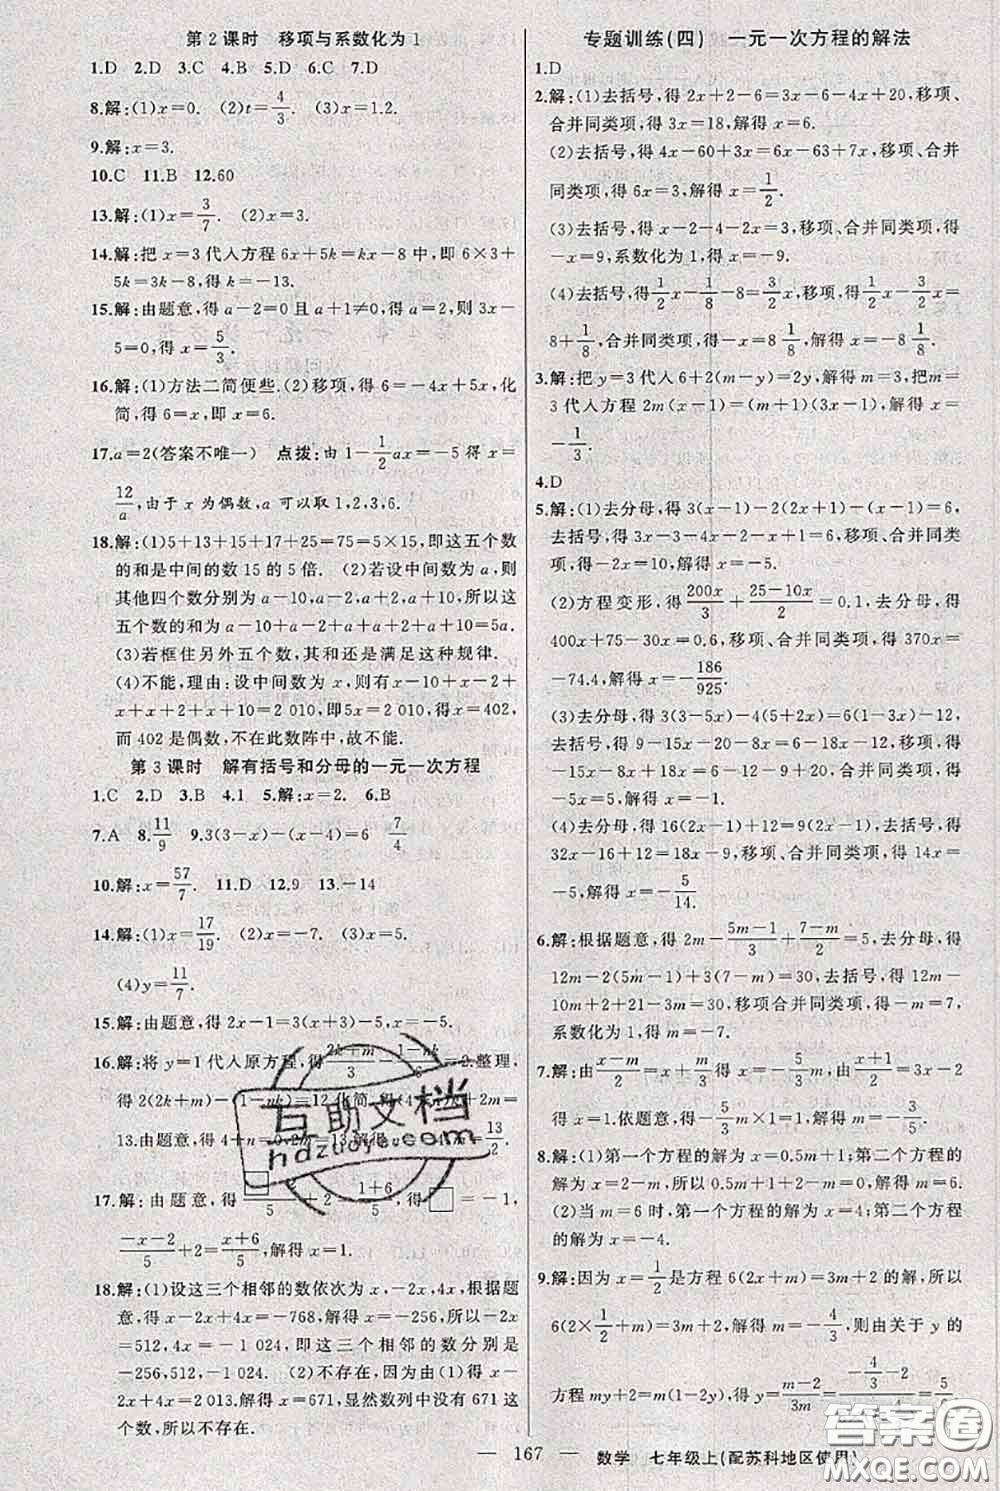 第2课时　移项与系数化为1
1.D　2.D　3.C　4.B　5.D　6.C　7.D
8.解:(1)x=0.　(2)t=4/3.　(3)x=1.2.
9.解:x=3.
10.C　11.B　12.60
13.解:(1)x=3/7.　(2)x=3.
14.解:把 x=3 代入方程 6x+5k=kx-8 中,即 6×3+
5k=3k-8,解得 k=-13.
15.解:由题意,得 a-2=0 且 a+1≠0,得 a=2,即 3x
-5=0,得 x=5/3.
16.解:(1)方法二简便些.(2)移项,得 6=-4x+5x,化
简,得 6=x,即 x=6.
17.a=2(答案不唯一)　点拨:由 1-1/2ax=-5 得 x=
12/a,由于 x 为偶数,a 可以取 1,2,3,6.
18.解:(1)5+13+15+17+25=75=5×15,即这五个数
的和是中间的数 15 的 5 倍.　(2)若设中间数为 a,则
其他四个数分别为 a-10,a-2,a+2,a+10,所以这
五个数的和为 a-10+a-2+a+a+2+a+10=5a.
(3)若框住另外五个数,其和还是满足这种规律.
(4)不能,理由:设中间数为 x,则有 x-10+x-2+
x+x+2+x+10=2 010,即5x=2 010,得 x=402,
而 402 是偶数,不在此数阵中,故不能.
第3课时　解有括号和分母的一元一次方程
1.C　2.D　3.B　4.1　5.解:x=2.　6.B
7.A　8.11/9　9.3(3-x)-(x-4)=6　7/4
10.解:x=57/7.　11.D　12.9　13.-14
14.解:(1)x=17/19.　(2)x=0.　(3)x=5.
(4)y=11/7.
15.解:由题意,得 2x-1=3(x+3)-5,x=-5.
16.解:将 y=1 代入原方程,得 (2k+m)/3-(1-nk)/6=2.整理,
得 2(2k+m)-(1-nk)=12,化简,得(4+n)k+2m=
13.由题意,得 4+n=0,2m=13,解得
17.解:由题意,得 □/5+2=(1+6)/5,得 □=-1,
(-x-2)/5+2=(x+6)/5,解得 x=1.
18.解:(1)设这三个相邻的数依次为 x,-2x,4x,根据题
意,得 x-2x+4x=-768,解得 x=-256,所以-2x
=512,4x=-1 024,即这三个相邻的数分别是
-256,512,-1 024.　(2)不存在,因为由(1)得 x-
2x+4x=2 013,解得 x=671,显然数列中没有 671 这
个数,所以不存在.
专题训练(四)　一元一次方程的解法
1.D
2.解:(1)去括号,得 2x+2-6=3x-6-4x+20,移项、
合并同类项,得 3x=18,解得 x=6.
(2)去括号,得 4x-60+3x=6x-63+7x,移项、合并
同类项,得 6x=3,解得 x=1/2.
(3)去括号,得 x-2-4-2x=3,移项、合并同类项,得
-x=9,系数化为 1,得 x=-9.
(4)去括号,得 1/4x-1/8-8=3/8x,移项,得-1/8x=
8+1/8,合并同类项,得-1/8x=8 1/8,解得 x=-65.
3.解:把 y=3 代入 6+2(m-y)=2y,解得 m=3,把m=
3 代入方程 2m(x-1)=(m+1)(3x-1),解得 x=
-1/3.
4.D
5.解:(1)去分母,得 3(x-1)-2(2x+1)-(x-1)=6,
去括号,得 3x-3-4x-2-x+1=6,移项、合并同类
项,得-2x=10,解得 x=-5.
(2)方程变形,得 200x/3+(25-10x)/2=0.1,去分母,得
400x+75-30x=0.6,移项、合并同类项,得 370x=
-74.4,解得 x=-186/925.
(3)去分母,得 3(3-5x)-4x=6(1-3x)-12,去括
号,得 9-15x-4x=6-18x-12,移项、合并同类项,得
-x=-15,解得 x=15.
(4)去分母,得 16(2x-1)+12=9(2x-1),去括号,得
32x-16+12=18x-9,移项、合并同类项,得 14x=
-5,解得 x=-5/14.
6.解:根据题意,得 2m-(5m-1)/3+(7-m)/2=5,去分母,得
12m-2(5m-1)+3(7-m)=30,去括号,得 12m-
10m+2+21-3m=30,移项合并同类项,得-m=7,
系数化为 1,得 m=-7.
7.解:由(x-m)/2=x+m/3,得 x=-5/3m,由(x+1)/2=3x-2
得 x=1.依题意,得-5/3m×1=1,解得 m=-3/5.
8.解:(1)第一个方程的解为 x=0.5m+1;第二个方程的
解为 x=2-m,所以 0.5m+1+2-m=0,得 m=6.
(2)当 m=6 时,第一个方程的解为 x=4;第二个方程
的解为 x=-4.
9.解:因为 x=1/2是方程 6(2x+m)=3x+2m 的解,所以
6(2×1/2+m)=3/2+2m,解得 m=-4/3,则由关于 y 的
方程 my+2=m(1-2y),得 y=(m-2)/3m=
167
数学　七年级上(配苏科地区使用)
互助文档
hdzuoye.com
答案圈
MXQE.COM